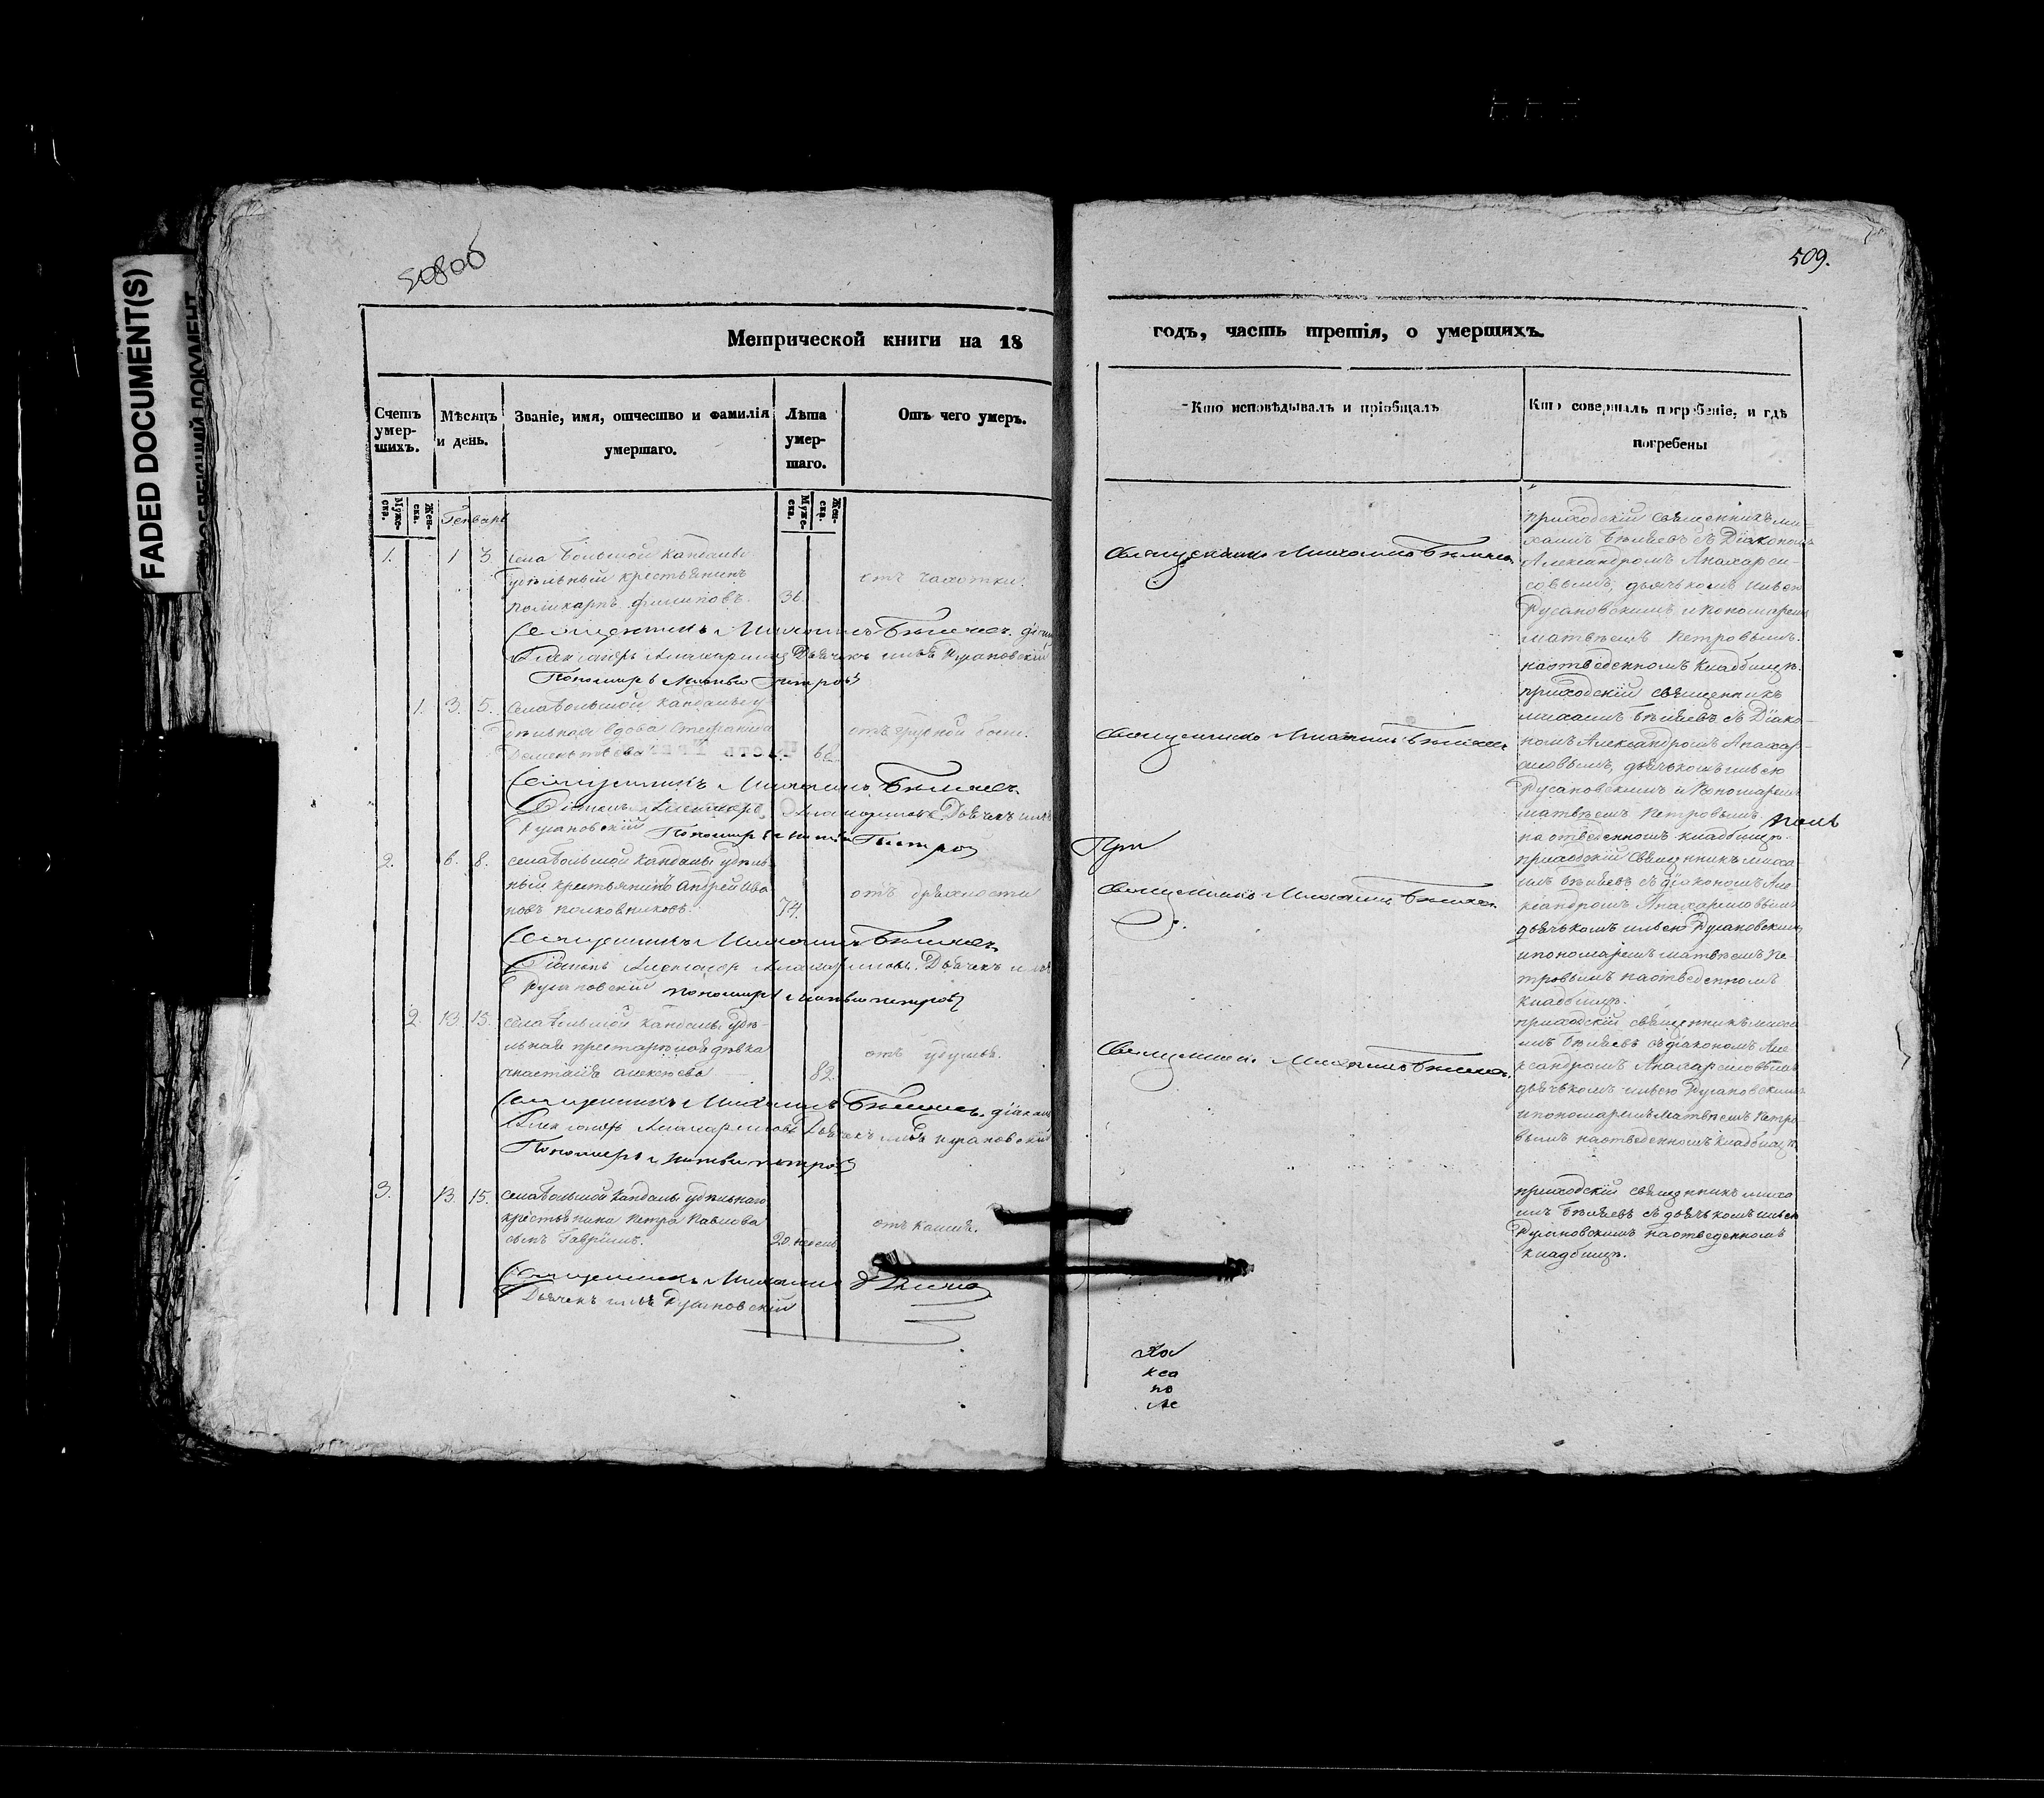 FADED DOCUMENT(S)
508об
509.
Метрической книги на 18
годъ, часть третія, о умершихъ.
Счетъ умер-шихъ.
Мѣсяцъ и день.
Званіе, имя, отчество и фамилія умершаго.
Лѣта умер-шаго.
Отъ чего умеръ.
Кто исповѣдывалъ и пріобщалъ
Кто совершалъ погребеніе, и гдѣ погребены
Муже-ска.
Жен-ска.
Генварь
Муже-ска.
Жен-ска.
1.
1
3.
села большой кандалы
удѣльный крестьянинъ
поликарпъ филиповъ.
36.
отъ чахотки.
Священникъ Михаилъ Бѣляевъ
приходскій священникъ ми-
хаилъ Бѣляевъ съ Діакономъ
Александромъ Анахарси-
совымъ, дьячькомъ ильею
Русановскимъ и пономаремъ
матвѣемъ петровымъ.
на отведенномъ кладбищѣ.
Священникъ Михаилъ Бѣляевъ. діаконъ
Александръ Анахарсисовъ Дьячекъ илья Русановскій
Пономарь Матвѣй Петровъ
1.
3.
5.
села большой кандалы у-
дѣльная вдова Стефанида
Дементьева
68.
отъ грудной боли.
Священникъ Михаилъ Бѣляевъ
приходскій священникъ
михаилъ Бѣляевъ съ Діако-
номъ Александромъ Анахар-
сисовымъ, дьячькомъ ильею
Русановскимъ и пономаремъ
матвѣемъ петровымъ.
на отведенномъ кладбищѣ.
Священникъ Михаилъ Бѣляевъ.
Діаконъ Александръ Анахарсисовъ Дьячекъ илья
Русановскій Пономарь Матвѣй Петровъ
При
2.
6.
8.
села большой кандалы удѣль-
ный крестьянинъ Андрей Ива-
новъ полковниковъ.
74.
отъ дряхлости
Священникъ Михаилъ Бѣляевъ.
приходскій священникъ миха-
илъ Бѣляевъ съ діакономъ Але-
ксандромъ Анахарсисовымъ
дьячькомъ ильею Русановскимъ
и пономаремъ матвѣемъ пе-
тровымъ на отведенномъ
кладбищѣ.
Священникъ Михаилъ Бѣляевъ
Діаконъ Александръ Анахарсисовъ. Дьячекъ илья
Русановскій пономарь Матвѣй петровъ
2.
13.
15.
села большой кандалы удѣ-
льная престарѣлая дѣвка
анастасія алексѣева
82.
отъ удушья.
Священникъ Михаилъ Бѣляевъ.
приходскій священникъ миха-
илъ Бѣляевъ съ діакономъ Але-
ксандромъ Анахарсисовымъ
дьячькомъ ильею Русановскимъ
и пономаремъ матвѣемъ петро-
вымъ на отведенномъ кладбищѣ.
Священникъ Михаилъ Бѣляевъ. діаконъ
Александръ Анахарсисовъ Дьячекъ илья Русановскій
Пономарь Матвѣй петровъ
3.
13.
15.
села большой кандалы удѣльнаго
крестьянина петра павлова
сынъ Гавріилъ.
20. недель
отъ кашля.
приходскій священникъ миха-
илъ Бѣляевъ съ дьячькомъ ильею
Русановскимъ на отведенномъ
кладбищѣ.
Священникъ Михаилъ Бѣляевъ
Дьячекъ илья Русановскій